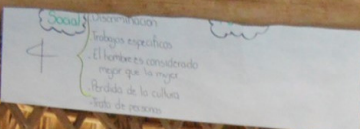 Social
Discriminación
Trabajos especificos
. El hombre es considerado
mejor que la mujer
. Perdida de la cultura
. Trata de personas